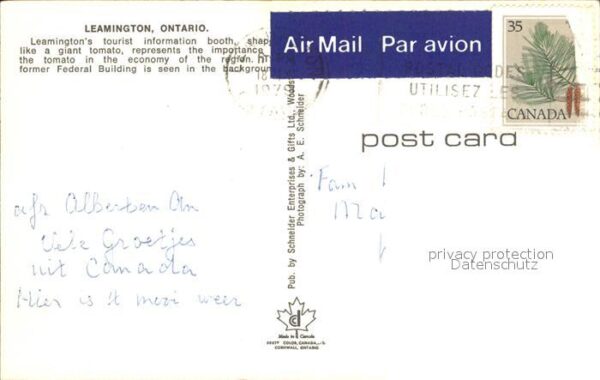 LEAMINGTON, ONTARIO.
Leamington's tourist information booth, shap
like a giant tomato, represents the importance
the tomato in the economy of the region. Th
former Federal Building is seen in the background
Air Mail Par avion
35
CANADA
1979
UTILISEZ LES
post card
Pub. by Schneider Enterprises & Gifts Ltd., Woods
Photograph by: A. E. Schneider
afz Alberten An
Vele Groetjes
uit Canada
Hier is 't mooi weer
Fam
privacy protection
Datenschutz
Made in Canada
COLOR, CANADA
CORNWALL, ONTARIO